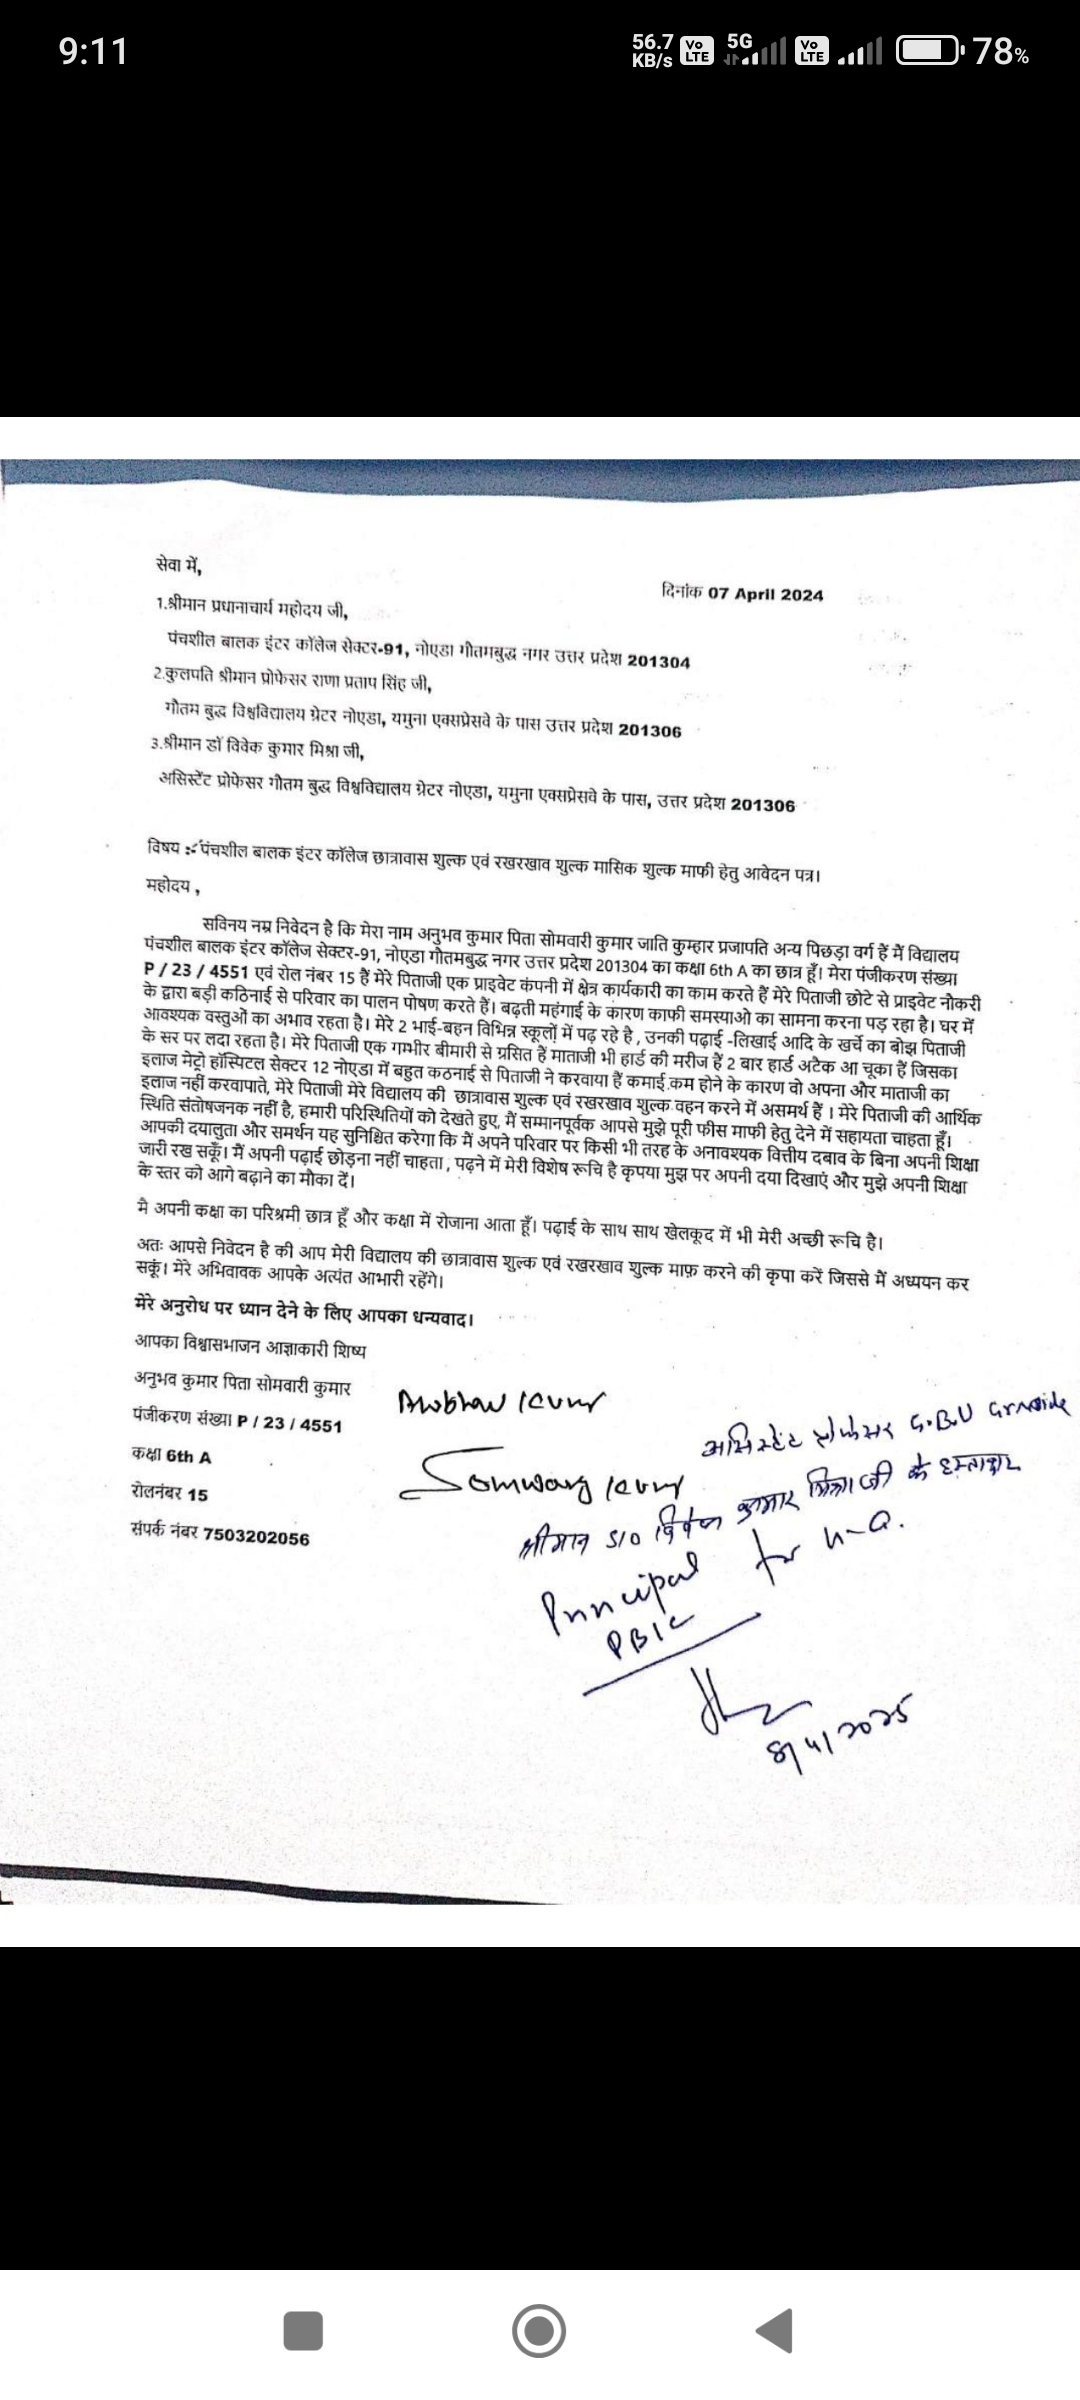 9:11
56.7 KB/s Vo LTE 5G Vo LTE 78%
सेवा में,
दिनांक 07 April 2024
1.श्रीमान प्रधानाचार्य महोदय जी,
पंचशील बालक इंटर कॉलेज सेक्टर-91, नोएडा गौतमबुद्ध नगर उत्तर प्रदेश 201304
2.कुलपति श्रीमान प्रोफेसर राणा प्रताप सिंह जी,
गौतम बुद्ध विश्वविद्यालय ग्रेटर नोएडा, यमुना एक्सप्रेसवे के पास उत्तर प्रदेश 201306
3.श्रीमान डॉ विवेक कुमार मिश्रा जी,
असिस्टेंट प्रोफेसर गौतम बुद्ध विश्वविद्यालय ग्रेटर नोएडा, यमुना एक्सप्रेसवे के पास, उत्तर प्रदेश 201306
विषय :- पंचशील बालक इंटर कॉलेज छात्रावास शुल्क एवं रखरखाव शुल्क मासिक शुल्क माफी हेतु आवेदन पत्र।
महोदय ,
सविनय नम्र निवेदन है कि मेरा नाम अनुभव कुमार पिता सोमवारी कुमार जाति कुम्हार प्रजापति अन्य पिछड़ा वर्ग हैं मैं विद्यालय
पंचशील बालक इंटर कॉलेज सेक्टर-91, नोएडा गौतमबुद्ध नगर उत्तर प्रदेश 201304 का कक्षा 6th A का छात्र हूँ। मेरा पंजीकरण संख्या
P / 23 / 4551 एवं रोल नंबर 15 हैं मेरे पिताजी एक प्राइवेट कंपनी में क्षेत्र कार्यकारी का काम करते हैं मेरे पिताजी छोटे से प्राइवेट नौकरी
के द्वारा बड़ी कठिनाई से परिवार का पालन पोषण करते हैं। बढ़ती महंगाई के कारण काफी समस्याओ का सामना करना पड़ रहा है। घर में
आवश्यक वस्तुओं का अभाव रहता है। मेरे 2 भाई-बहन विभिन्न स्कूलों में पढ़ रहे है , उनकी पढ़ाई -लिखाई आदि के खर्चे का बोझ पिताजी
के सर पर लदा रहता है। मेरे पिताजी एक गम्भीर बीमारी से ग्रसित हैं माताजी भी हार्ड की मरीज हैं 2 बार हार्ड अटैक आ चूका हैं जिसका
इलाज मेट्रो हॉस्पिटल सेक्टर 12 नोएडा में बहुत कठनाई से पिताजी ने करवाया हैं कमाई कम होने के कारण वो अपना और माताजी का
इलाज नहीं करवापाते, मेरे पिताजी मेरे विद्यालय की छात्रावास शुल्क एवं रखरखाव शुल्क वहन करने में असमर्थ हैं । मेरे पिताजी की आर्थिक
स्थिति संतोषजनक नहीं है, हमारी परिस्थितियों को देखते हुए, मैं सम्मानपूर्वक आपसे मुझे पूरी फीस माफी हेतु देने में सहायता चाहता हूँ।
आपकी दयालुता और समर्थन यह सुनिश्चित करेगा कि मैं अपने परिवार पर किसी भी तरह के अनावश्यक वित्तीय दबाव के बिना अपनी शिक्षा
जारी रख सकूँ। मैं अपनी पढ़ाई छोड़ना नहीं चाहता , पढ़ने में मेरी विशेष रूचि है कृपया मुझ पर अपनी दया दिखाएं और मुझे अपनी शिक्षा
के स्तर को आगे बढ़ाने का मौका दें।
मै अपनी कक्षा का परिश्रमी छात्र हूँ और कक्षा में रोजाना आता हूँ। पढ़ाई के साथ साथ खेलकूद में भी मेरी अच्छी रूचि है।
अतः आपसे निवेदन है की आप मेरी विद्यालय की छात्रावास शुल्क एवं रखरखाव शुल्क माफ़ करने की कृपा करें जिससे मैं अध्ययन कर
सकूं। मेरे अभिवावक आपके अत्यंत आभारी रहेंगे।
मेरे अनुरोध पर ध्यान देने के लिए आपका धन्यवाद।
आपका विश्वासभाजन आज्ञाकारी शिष्य
अनुभव कुमार पिता सोमवारी कुमार
पंजीकरण संख्या P / 23 / 4551
कक्षा 6th A
रोलनंबर 15
संपर्क नंबर 7503202056
असिस्टेंट प्रोफेसर G.B.U
श्रीमान विवेक कुमार मिश्रा जी के हस्ताक्षर
Principal for n-a.
PBIC
8/4/2025